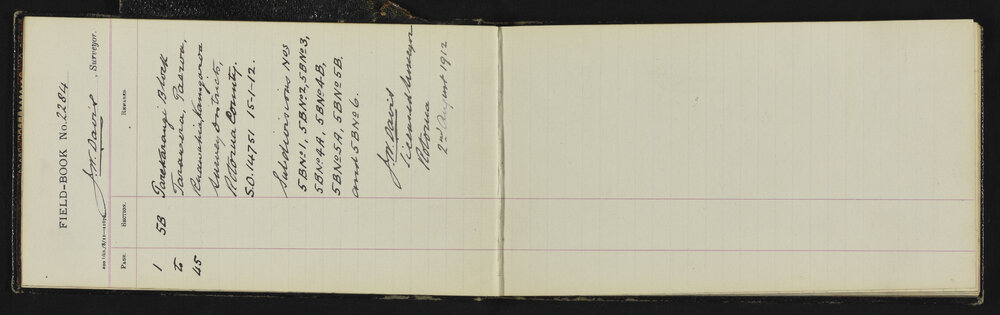 FIELD-BOOK No. 2284
J.W. Davis, Surveyor.
PAGE. SECTION. REMARKS.
1 5B Parekarangi Block
to Tarawera, Paeroa,
45 Ruawahia, Kaingaroa
Survey Districts,
Rotorua County.
S.O. 14751 15-1-12.
Subdivisions Nos
5B No 1, 5B No 2, 5B No 3,
5B No 4A, 5B No 4B,
5B No 5A, 5B No 5B,
and 5B No 6.
J.W. Davis
Licensed Surveyor
Rotorua
2nd August 1912